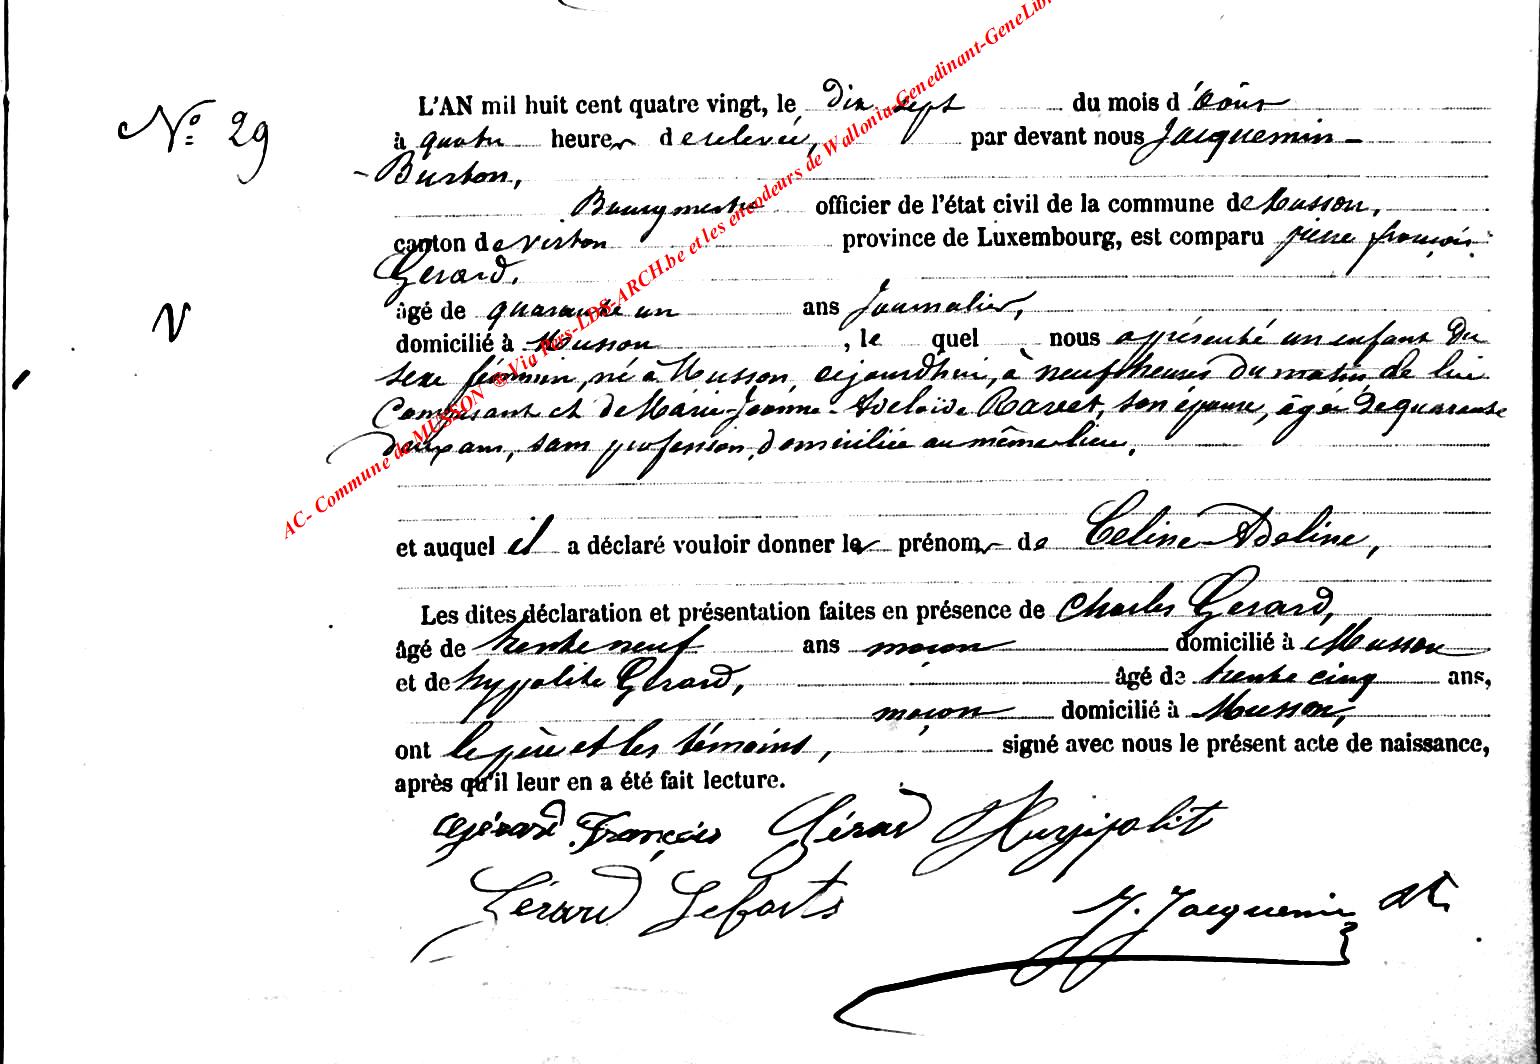 AC- Commune de MUSSON ®Via Pers-LDS-ARCH.be et les encodeurs de Wallonia-Genedinant-GeneLib
N° 29
V
L'AN mil huit cent quatre vingt, le dix sept du mois d'août
à quatre heures de relevée, par devant nous Jacquemin-
-Burton,
Bourgmestre officier de l'état civil de la commune de Musson,
canton de Virton province de Luxembourg, est comparu pierre françois
Gerard,
âgé de quarante un ans Journalier,
domicilié à Musson, le quel nous a présenté un enfant du
sexe féminin, né à Musson, cejourdhui, à neuf heures du matin, de lui
Comparant et de Marie-Jeanne-Adelaïde Ravet, son épouse, âgée de quarante
deux ans, sans profession, domiciliée au même lieu,
et auquel il a déclaré vouloir donner les prénoms de Celine-Adeline,
Les dites déclaration et présentation faites en présence de Charles Gerard,
âgé de trente neuf ans maçon domicilié à Musson
et de hyppolite Gerard, âgé de trente cinq ans,
maçon domicilié à Musson,
ont le père et les témoins, signé avec nous le présent acte de naissance,
après qu'il leur en a été fait lecture.
Gérard François Gérard Hurppolit
Gérard J. Jacquemin